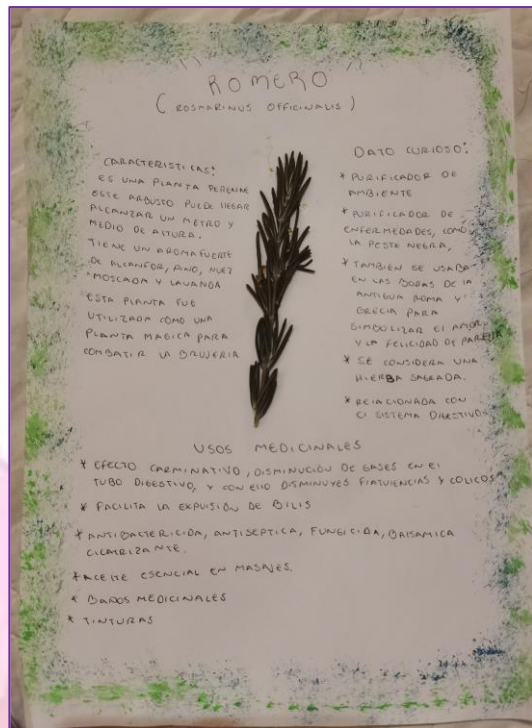 ROMERO
(ROSMARINUS OFFICINALIS)
CARACTERISTICAS:
ES UNA PLANTA PERENNE
ESTE ARBUSTO PUEDE LLEGAR
ALCANZAR UN METRO Y
MEDIO DE ALTURA.
TIENE UN AROMA FUERTE
DE ALCANFOR, PINO, NUEZ
MOSCADA Y LAVANDA
ESTA PLANTA FUE
UTILIZADA COMO UNA
PLANTA MAGICA PARA
COMBATIR LA BRUJERIA
DATO CURIOSO:
* PURIFICADOR DE
AMBIENTE
* PURIFICADOR DE
ENFERMEDADES, COMO
LA PESTE NEGRA,
* TAMBIEN SE USABA
EN LAS BODAS DE LA
ANTIGUA ROMA Y
GRECIA PARA
SIMBOLIZAR EL AMOR
Y LA FELICIDAD DE PAREJA
* SE CONSIDERA UNA
HIERBA SAGRADA.
* RELACIONADA CON
EL SISTEMA DIGESTIVO
USOS MEDICINALES
* EFECTO CARMINATIVO, DISMINUCIÓN DE GASES EN EL
TUBO DIGESTIVO, Y CON ELLO DISMINUYES FLATULENCIAS Y COLICOS
* FACILITA LA EXPULSIÓN DE BILIS
* ANTIBACTERICIDA, ANTISEPTICA, FUNGICIDA, BALSAMICA
CICATRIZANTE.
* ACEITE ESENCIAL EN MASAJES.
* BAÑOS MEDICINALES
* TINTURAS